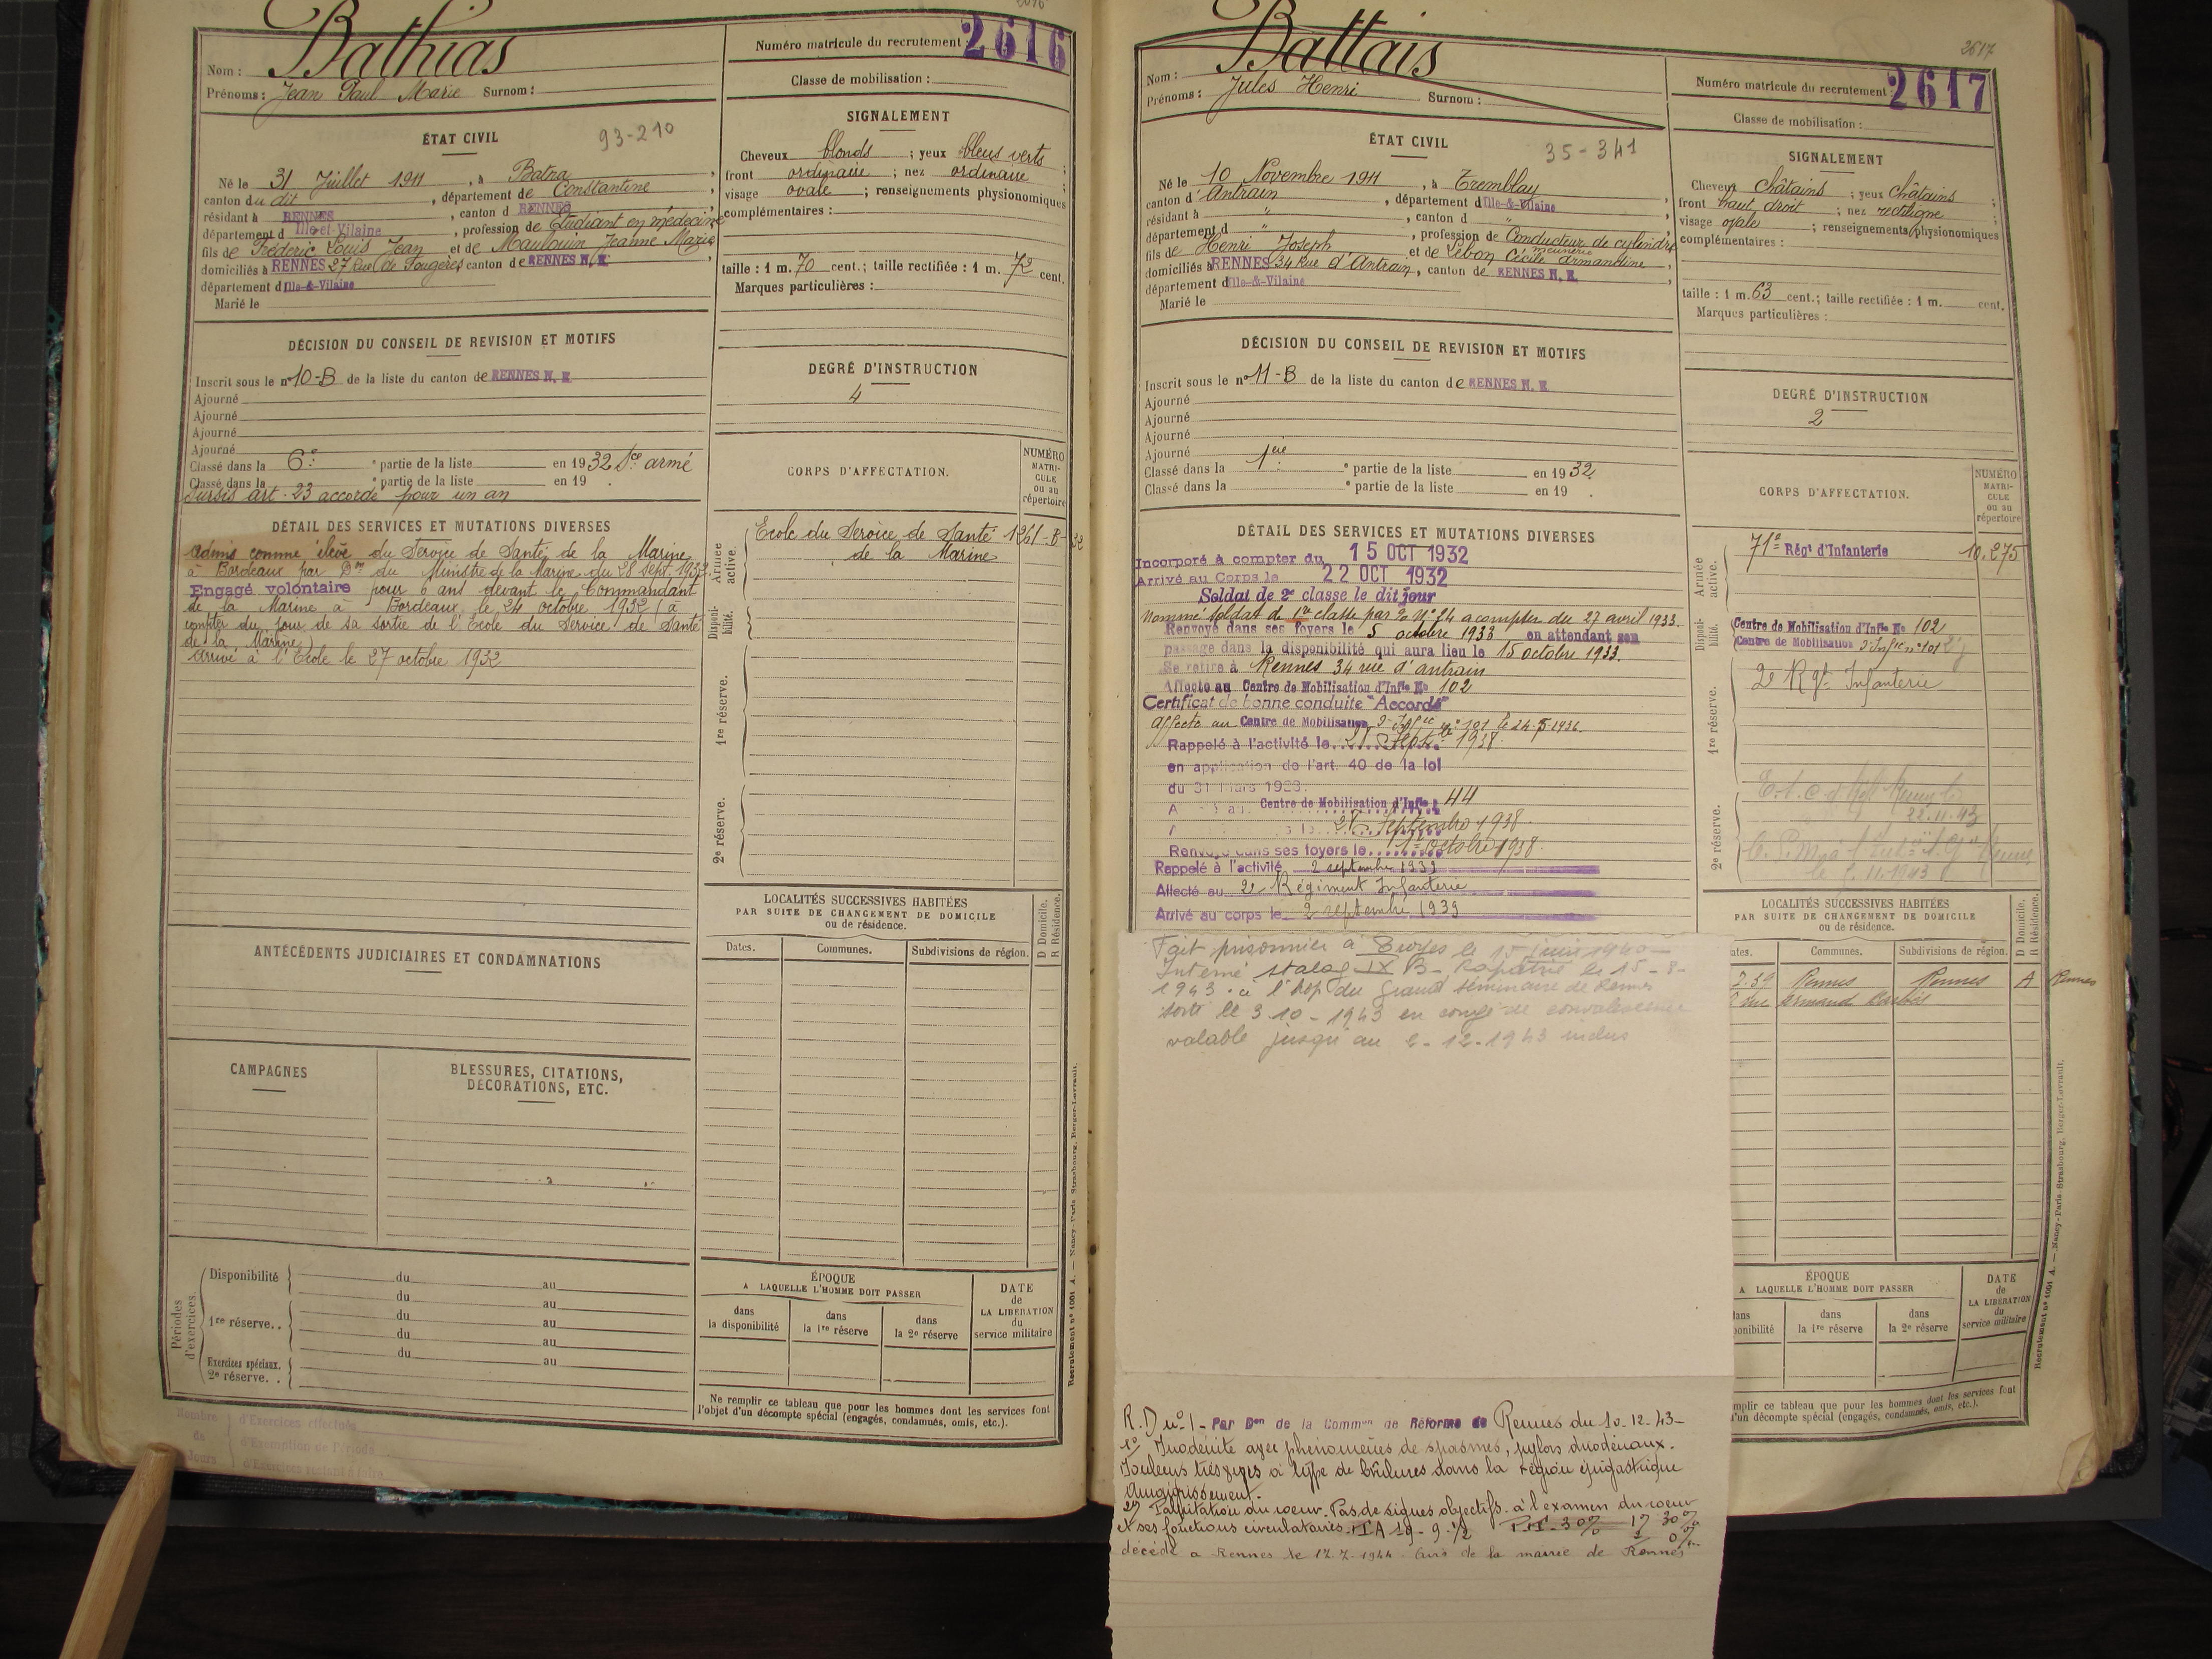 2616
Nom : Bathias
Prénoms : Jean Paul Marie Surnom :
Numéro matricule du recrutement : 2616
Classe de mobilisation :
ÉTAT CIVIL
93-210
Né le 31 Juillet 1911, à Batna,
canton du dit, département de Constantine,
résidant à RENNES, canton d RENNES
département d Ille-et-Vilaine, profession de Etudiant en médecine
fils de Fréderic Louis Jean et de Maulouin Jeanne Marie
domiciliés à RENNES 27 Rue de Fougères canton de RENNES N. E.,
département d Ille-&-Vilaine
Marié le
SIGNALEMENT
Cheveux blonds ; yeux bleus verts ;
front ordinaire ; nez ordinaire ;
visage ovale ; renseignements physionomiques
complémentaires :
taille : 1 m. 70 cent.; taille rectifiée : 1 m. 72 cent.
Marques particulières :
DÉCISION DU CONSEIL DE REVISION ET MOTIFS
Inscrit sous le n° 10-B de la liste du canton de RENNES N. E.
Ajourné
Ajourné
Ajourné
Ajourné
Classé dans la 6e ° partie de la liste en 1932 Sce armé
Classé dans la ° partie de la liste en 19 .
Sursis art. 23 accordé pour un an
DEGRÉ D'INSTRUCTION
4
CORPS D'AFFECTATION.
NUMÉRO
MATRI-
CULE
ou au
répertoire
DÉTAIL DES SERVICES ET MUTATIONS DIVERSES
Admis comme élève du Service de Santé de la Marine
à Bordeaux par Don du Ministre de la Marine du 28 sept. 1932.
Engagé volontaire pour 6 ans devant le Commandant
de la Marine à Bordeaux le 24 octobre 1932 (à
compter du jour de sa sortie de l'Ecole du Service de Santé
de la Marine)
Arrivé à l'Ecole le 27 octobre 1932
Armée
active.
Ecole du Service de Santé 1261-B-32
de la Marine
Disponi-
bilité.
1re réserve.
2e réserve.
LOCALITÉS SUCCESSIVES HABITÉES
PAR SUITE DE CHANGEMENT DE DOMICILE
ou de résidence.
D Domicile.
R Résidence.
Dates. Communes. Subdivisions de région.
ANTÉCÉDENTS JUDICIAIRES ET CONDAMNATIONS
CAMPAGNES
BLESSURES, CITATIONS,
DÉCORATIONS, ETC.
Périodes
d'exercices.
Disponibilité du au
du au
1re réserve. . du au
du au
Exercices spéciaux. du au
2e réserve. .
ÉPOQUE
A LAQUELLE L'HOMME DOIT PASSER
dans
la disponibilité
dans
la 1re réserve
dans
la 2e réserve
DATE
de
LA LIBÉRATION
du
service militaire
Ne remplir ce tableau que pour les hommes dont les services font
l'objet d'un décompte spécial (engagés, condamnés, omis, etc.).
Recrutement n° 1001 A. — Nancy-Paris-Strasbourg, Berger-Levrault.
Nombre
de
Jours
d'Exercices effectués
d'Exemption de Période
2617
Nom : Battais
Prénoms : Jules Henri Surnom :
Numéro matricule du recrutement : 2617
Classe de mobilisation :
ÉTAT CIVIL
35-341
Né le 10 Novembre 1911, à Tremblay,
canton d'Antrain, département d Ille-&-Vilaine
résidant à ", canton d "
département d ", profession de Conducteur de cylindre
fils de Henri Joseph et de Lebon Cécile Armandine
domiciliés à RENNES 34 Rue d'Antrain, canton de RENNES N. E.,
département d Ille-&-Vilaine
Marié le
SIGNALEMENT
Cheveux châtains ; yeux châtains ;
front haut droit ; nez rectiligne ;
visage ovale ; renseignements physionomiques
complémentaires :
taille : 1 m. 63 cent.; taille rectifiée : 1 m. cent.
Marques particulières :
DÉCISION DU CONSEIL DE REVISION ET MOTIFS
Inscrit sous le n° 11-B de la liste du canton de RENNES N. E.
Ajourné
Ajourné
Ajourné
Ajourné
Classé dans la 1ère ° partie de la liste en 1932.
Classé dans la ° partie de la liste en 19 .
DEGRÉ D'INSTRUCTION
2
CORPS D'AFFECTATION.
NUMÉRO
MATRI-
CULE
ou au
répertoire
DÉTAIL DES SERVICES ET MUTATIONS DIVERSES
Incorporé à compter du 15 OCT 1932
Arrivé au Corps le 22 OCT 1932
Soldat de 2e classe le dit jour
Nommé soldat de 1re classe par % N° 24 a compter du 27 avril 1933.
Renvoyé dans ses foyers le 5 octobre 1933 en attendant son
passage dans la disponibilité qui aura lieu le 15 octobre 1933.
Se retire à Rennes 34 rue d'antrain
Affecté au Centre de Mobilisation d'Infie No 102
Certificat de bonne conduite "Accordé"
affecté au Centre de Mobilisation d'Infie n° 101 le 24-5-1936.
Rappelé à l'activité le 28 Septbre 1938
en application de l'art. 40 de la loi
du 31 Mars 1928.
Centre de Mobilisation d'Infie 44
28 Septembre 1938.
Renvoyé dans ses foyers le 1er octobre 1938.
Rappelé à l'activité 2 septembre 1939
Affecté au 2e Régiment Infanterie
Arrivé au corps le 2 septembre 1939
Armée
active.
71e Régt d'Infanterie 10.275
Disponi-
bilité.
Centre de Mobilisation d'Infie No 102
Centre de Mobilisation d'Infie n° 101
1re réserve.
2e Rgt Infanterie
2e réserve.
22.11.43
LOCALITÉS SUCCESSIVES HABITÉES
PAR SUITE DE CHANGEMENT DE DOMICILE
ou de résidence.
D Domicile.
R Résidence.
ates. Communes. Subdivisions de région.
2.39 Rennes Rennes A Rennes
rue Armand Barbès
Fait prisonnier à le 15 juin 1940 —
Interné stalag IX B - Rapatrié le 15-8-
1943 à l'hop du Grand Séminaire de Rennes
sorti le 3-10-1943 en congé de convalescence
valable jusqu'au 2-12-1943 inclus
ÉPOQUE
A LAQUELLE L'HOMME DOIT PASSER
dans
ponibilité
dans
la 1re réserve
dans
la 2e réserve
DATE
de
LA LIBÉRATION
du
service militaire
mplir ce tableau que pour les hommes dont les services font
d'un décompte spécial (engagés, condamnés, omis, etc.).
Recrutement n° 1001 A. — Nancy-Paris-Strasbourg, Berger-Levrault.
R.D n° 1 - Par Don de la Common de Réforme de Rennes du 10-12-43-
1° Duodénite avec phénomènes de spasmes, pyloro duodénaux.
Douleurs très vives à type de brûlures dans la région épigastrique
Amaigrissement.
2° Palpitation du coeur. Pas de signes objectifs à l'examen du coeur
et ses fonctions circulatoires. TA 19-9 ½ P.I. 30% 1° 30%
2° 0%
décédé à Rennes le 17.7.1944. Avis de la mairie de Rennes